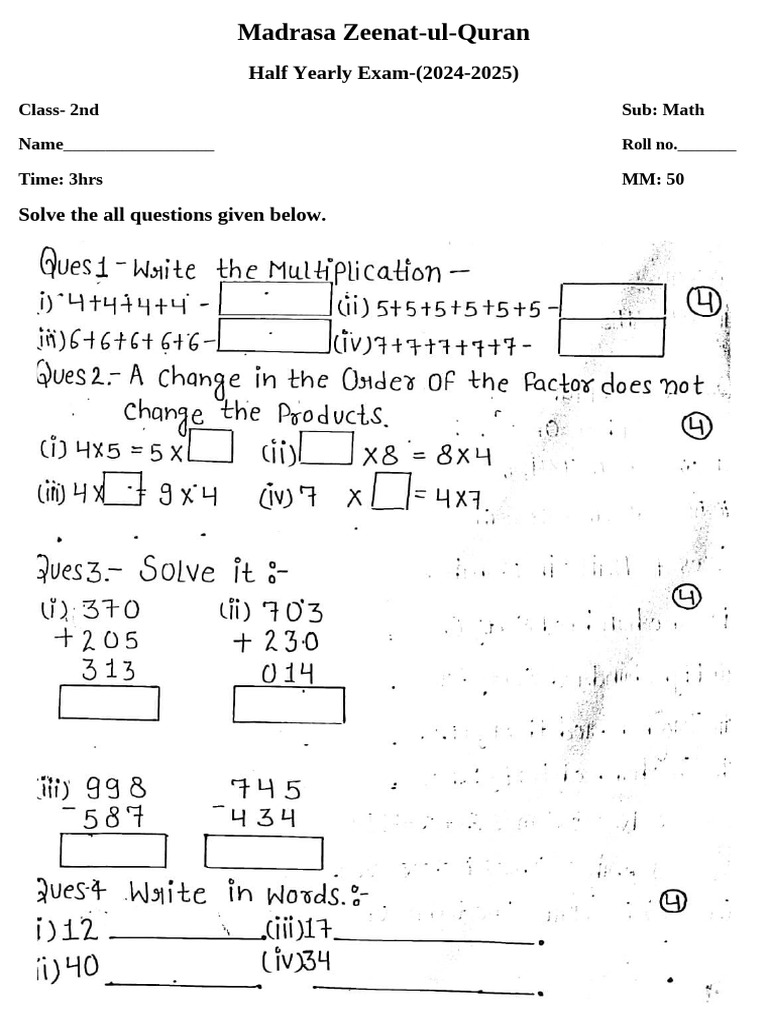 Madrasa Zeenat-ul-Quran
Half Yearly Exam-(2024-2025)
Class- 2nd Sub: Math
Name_________________ Roll no._______
Time: 3hrs MM: 50
Solve the all questions given below.
Ques1 - Write the Multiplication -
i) 4+4+4+4 - (ii) 5+5+5+5+5+5 - 4
iii) 6+6+6+6+6 - (iv) 7+7+7+7+7 -
Ques2.- A change in the Order OF the factor does not
change the Products. 4
(i) 4x5 = 5x (ii) x8 = 8x4
(iii) 4x = 9x4 (iv) 7 x = 4x7.
Ques3.- Solve it :-
(i) 370 (ii) 703 4
+ 205 + 230
313 014
iii) 998 745
- 587 - 434
Ques-4 Write in Words.:- 4
i) 12 ________. (iii) 17 ________.
ii) 40 ________. (iv) 34 ________.